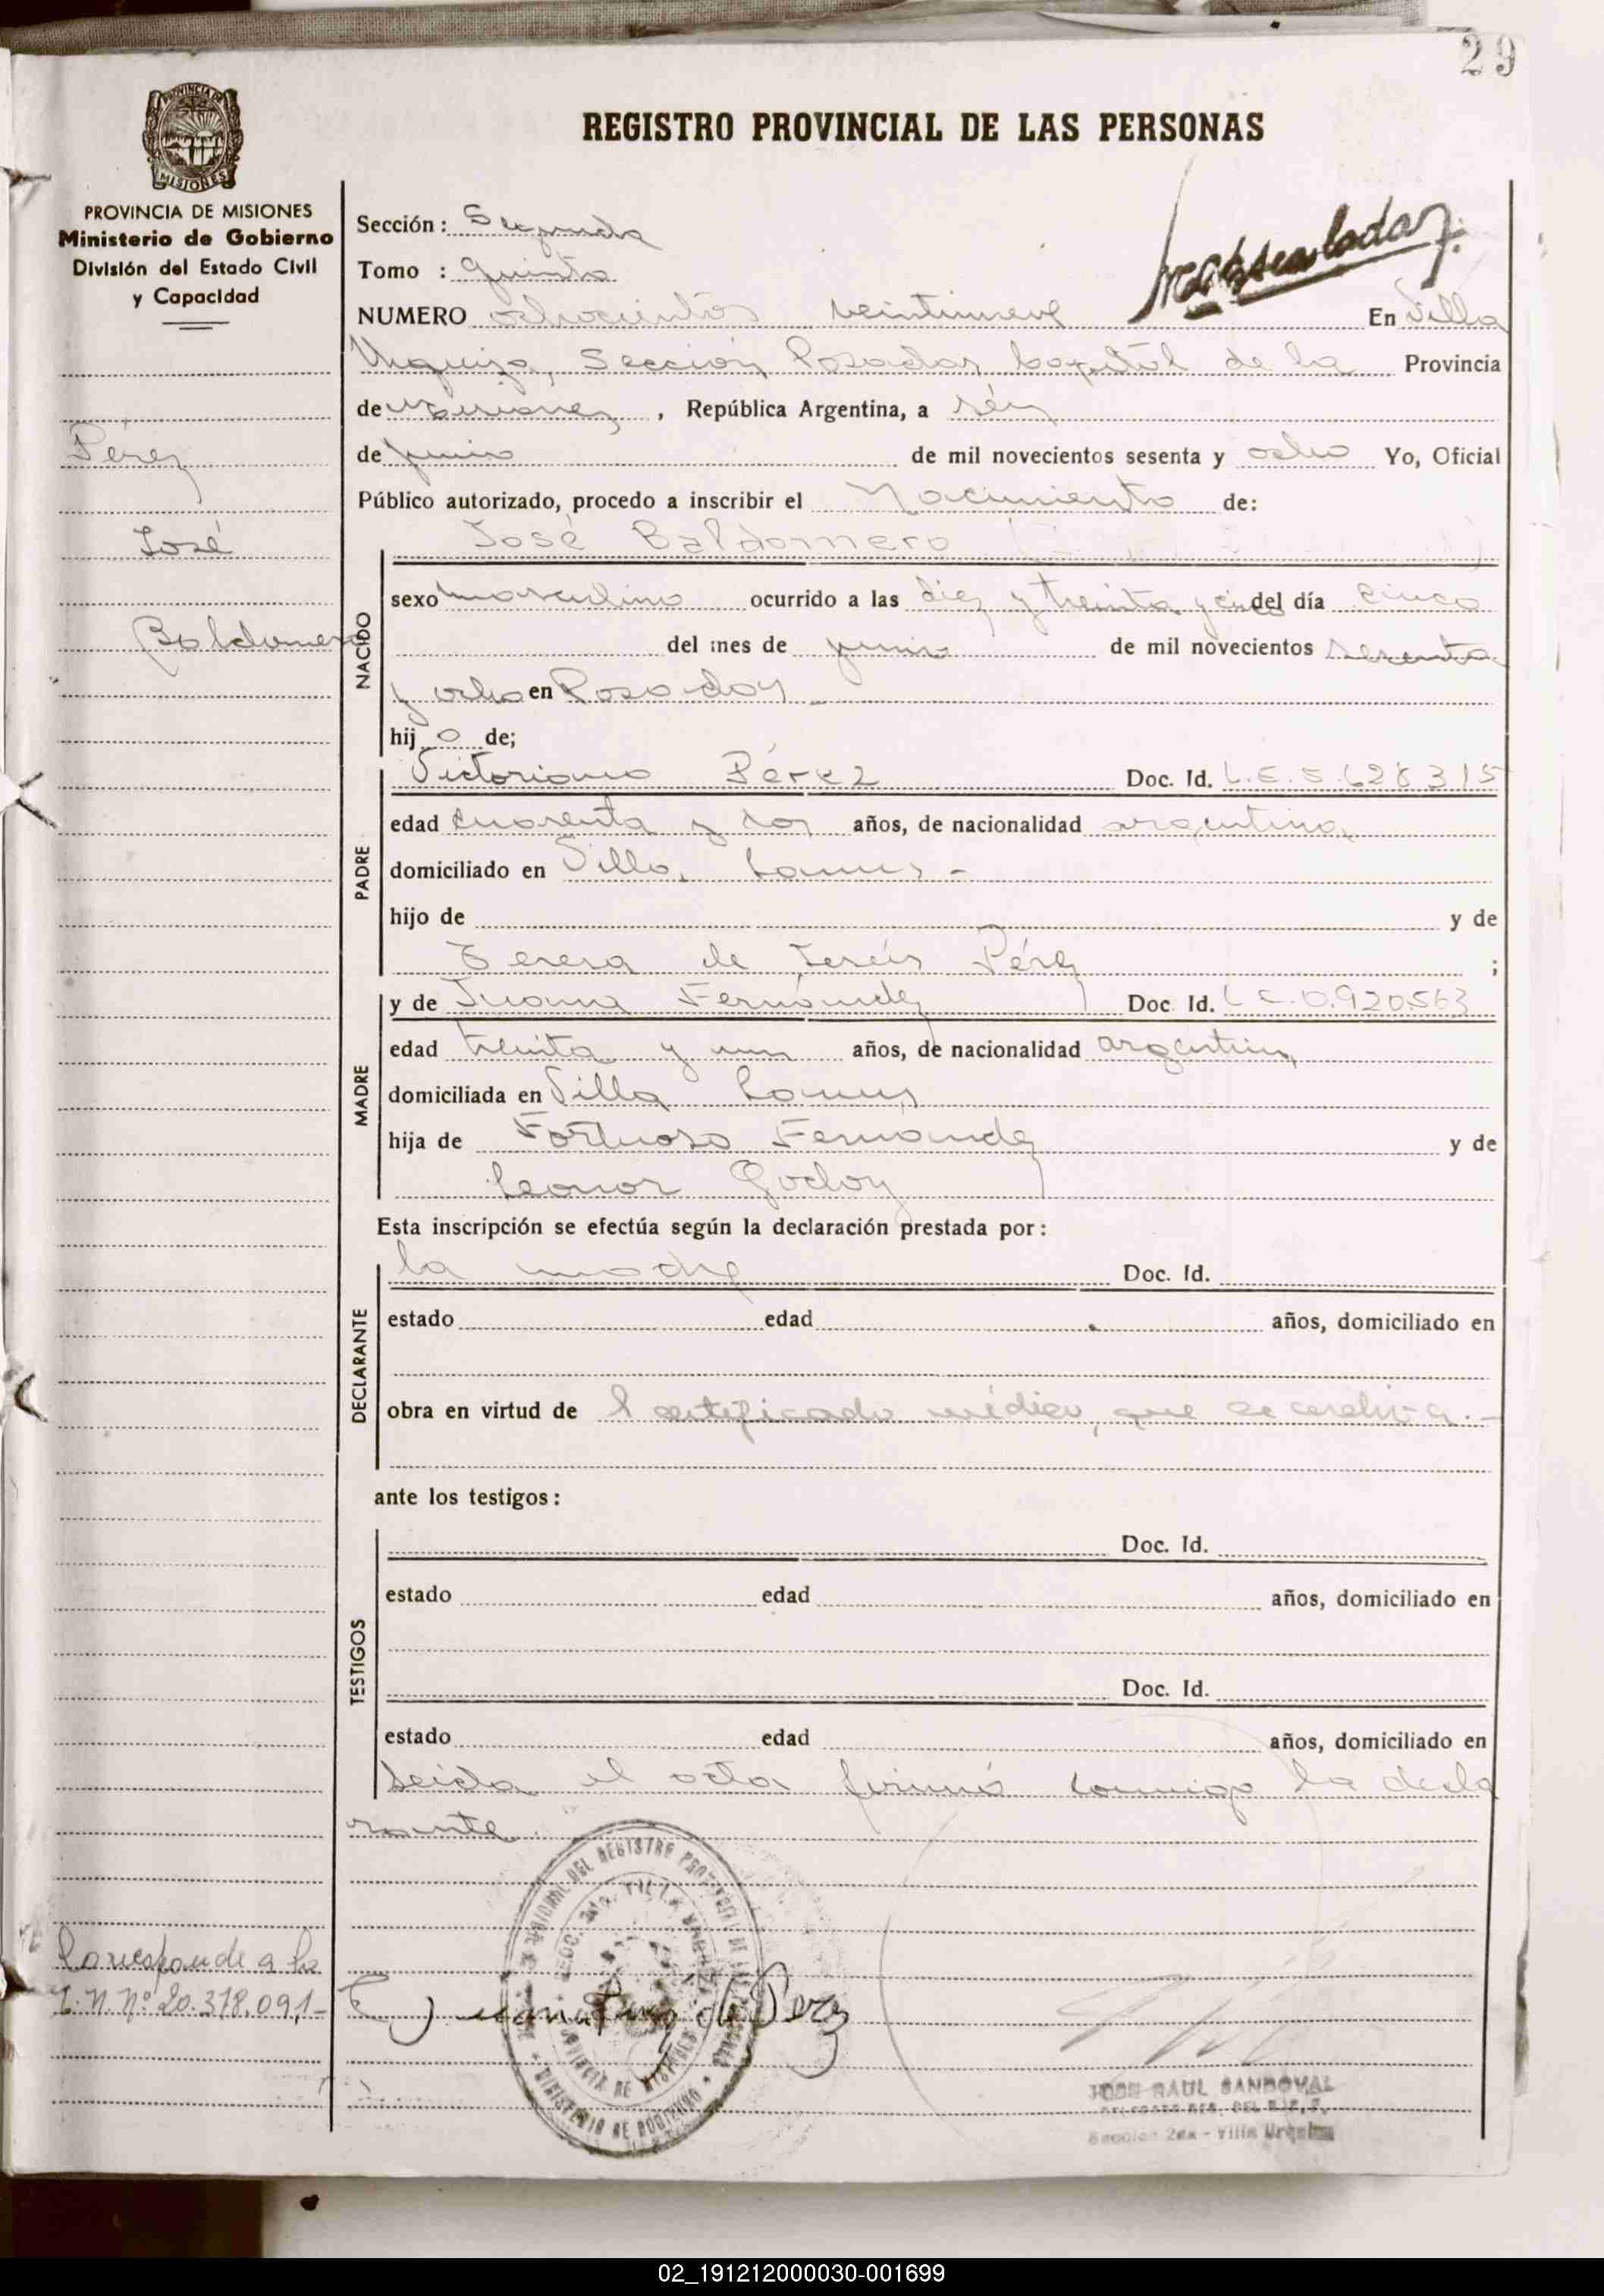 29
REGISTRO PROVINCIAL DE LAS PERSONAS
PROVINCIA DE
MISIONES
PROVINCIA DE MISIONES
Ministerio de Gobierno
División del Estado Civil
y Capacidad
Pérez
José
Baldomero
Sección: Segunda
Tomo : Quinto
NUMERO ochocientos veintinueve En Villa
Urquiza, Sección Posadas Capital de la Provincia
de Misiones, República Argentina, a séis
de junio de mil novecientos sesenta y ocho Yo, Oficial
Público autorizado, procedo a inscribir el Nacimiento de:
NACIDO
José Baldomero
sexo masculino ocurrido a las diez y treinta y cinco del día cinco
del mes de junio de mil novecientos sesenta
y ocho en Posadas
hij o de;
PADRE
Victoriano Pérez Doc. Id. L.E. 5.628.315
edad cuarenta y dos años, de nacionalidad argentina
domiciliado en Villa Lanus -
hijo de y de
Teresa de Jesús Pérez ;
MADRE
y de Juana Fernández Doc. Id. L C. 0.920.563
edad treinta y un años, de nacionalidad argentina
domiciliada en Villa Lanus
hija de Fortuoso Fernandez y de
Leonor Godoy
Esta inscripción se efectúa según la declaración prestada por:
DECLARANTE
la madre Doc. Id.
estado edad años, domiciliado en
obra en virtud de l certificado médico, que se archiva.-
ante los testigos:
TESTIGOS
Doc. Id.
estado edad años, domiciliado en
Doc. Id.
estado edad años, domiciliado en
Leida el acta firmó conmigo la decla
rante
Corresponde a la
L.N. Nº 20.378.091-
de Perez
JOSE RAUL SANDOVAL
Sección 2da - Villa Urquiza
02_191212000030-001699